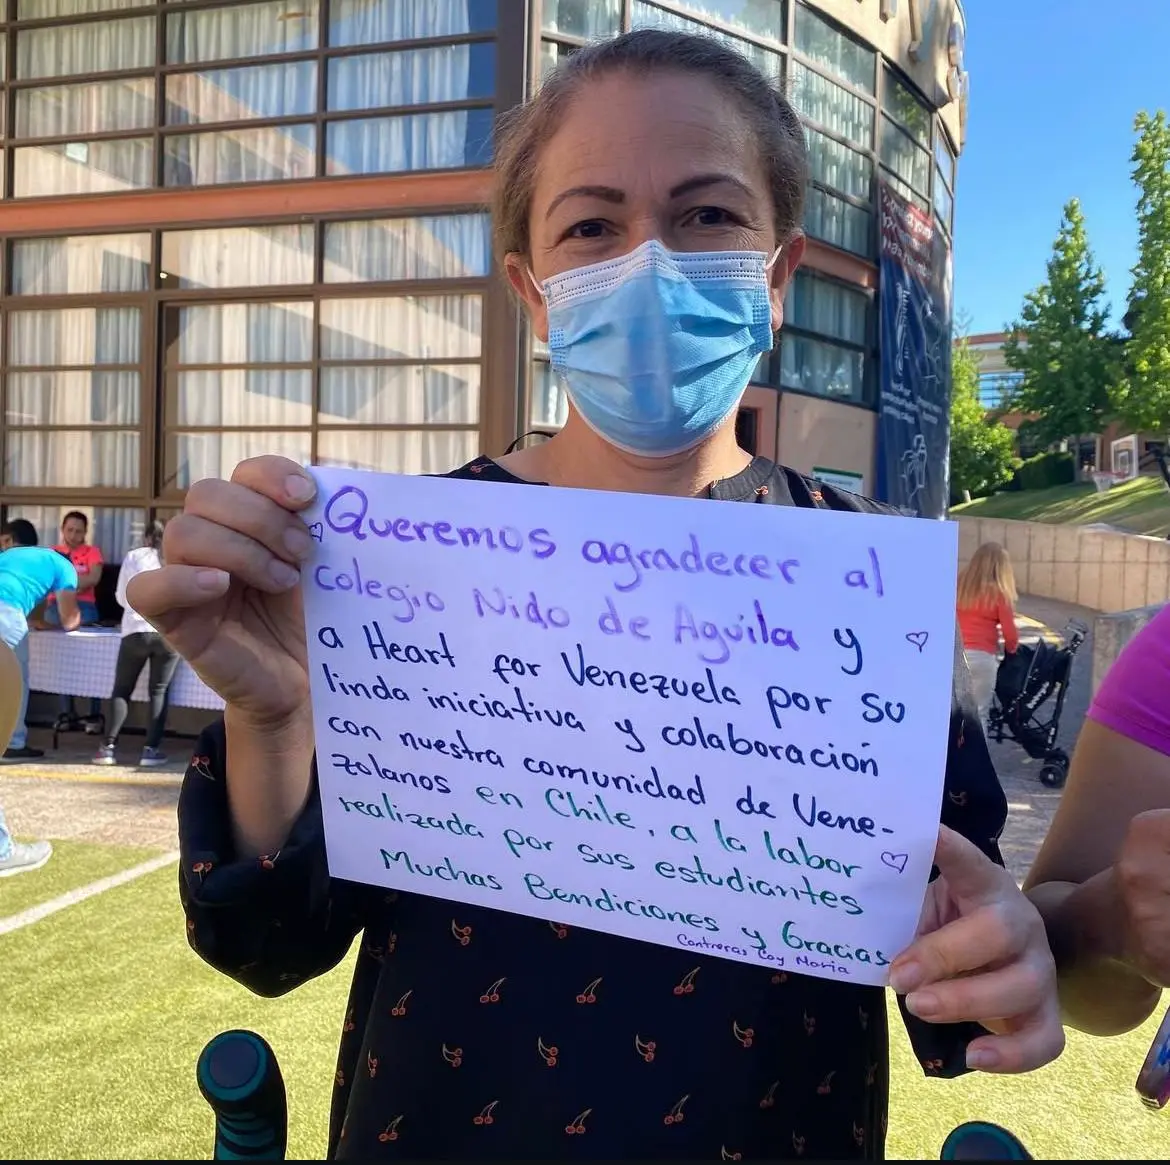 Queremos agradecer al
colegio Nido de Aguila y
a Heart for Venezuela por su
linda iniciativa y colaboración
con nuestra comunidad de Vene-
zolanos en Chile, a la labor
realizada por sus estudiantes
Muchas Bendiciones y Gracias
Contreras Coy Maria